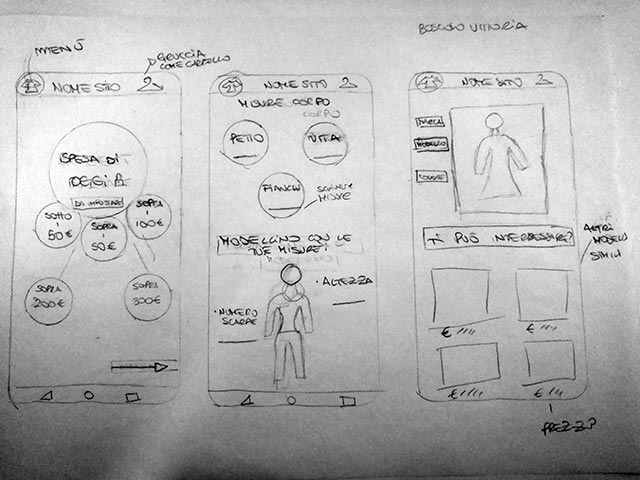 MENÙ
GRUCCIA
COME CARRELLO
BOSCOLO VITTORIA
NOME SITO
SPESA DI
OGGI È
DA IMPOSTARE
SOTTO
I
50€
SOPRA
I
50€
SOPRA
I
100€
SOPRA
200€
SOPRA
300€
NOME SITO
MISURE CORPO
CORPO
PETTO
VITA
FIANCHI
SCRIVERE
MISURE
MODELLINO CON LE
TUE MISURE!
• ALTEZZA
• NUMERO
SCARPE
NOME SITO
MARCA
MODELLO
TI PUÒ INTERESSARE?
ALTRI
MODELLI
SIMILI
€
€
€
€
PREZZO